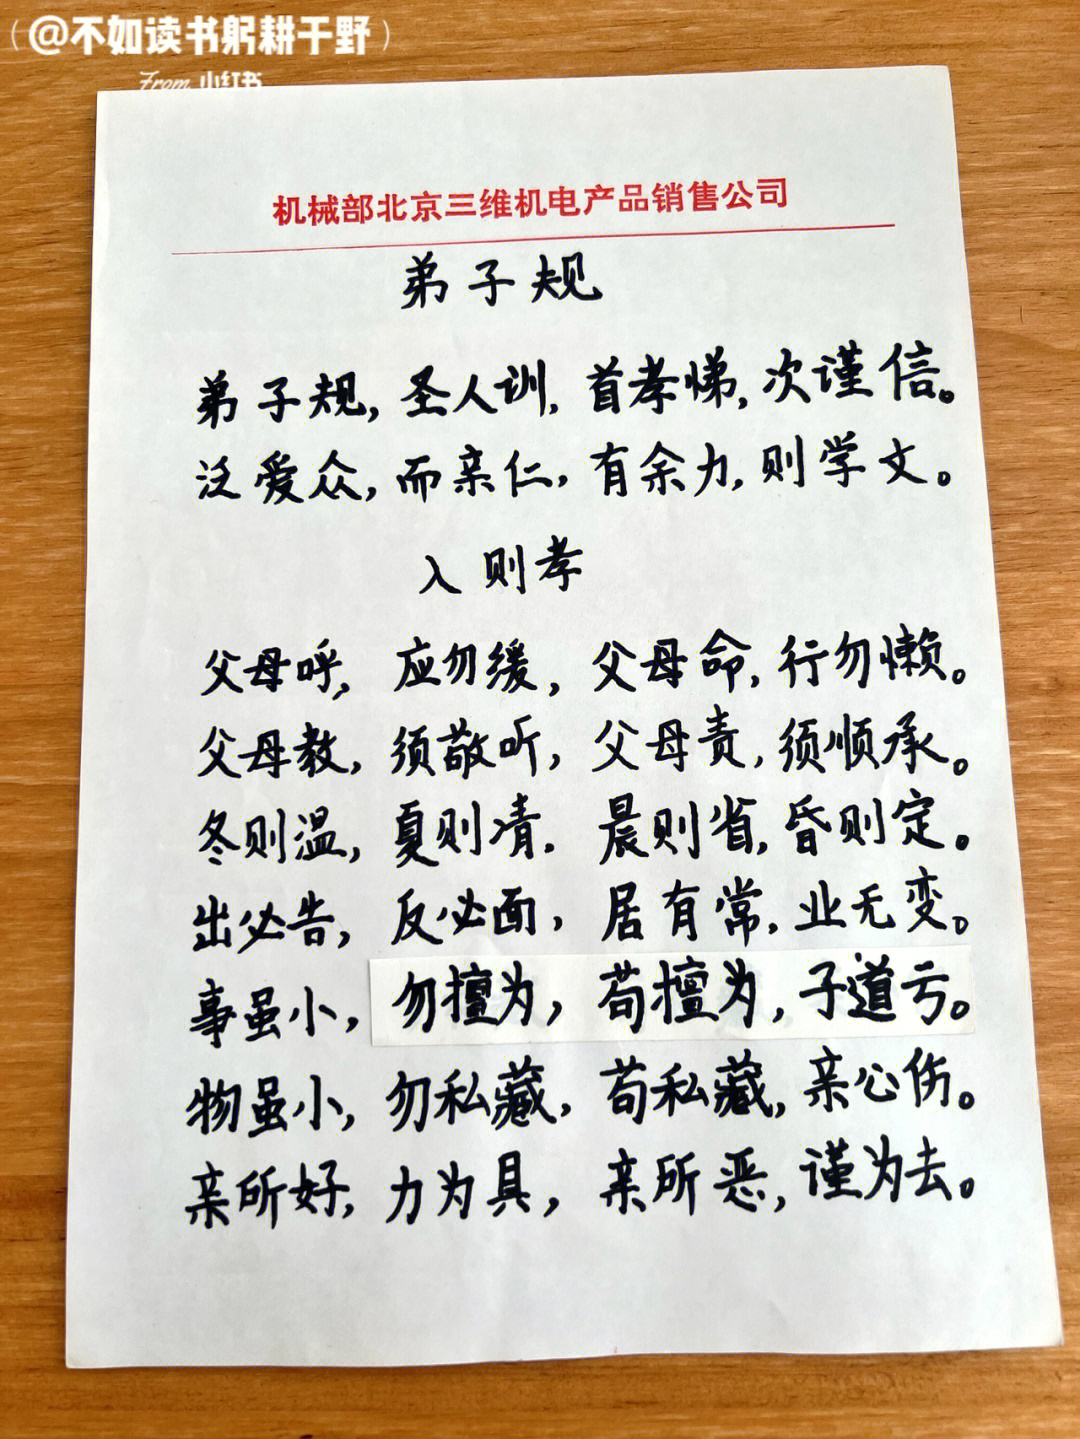 （@不如读书躬耕于野）
From 小红书
机械部北京三维机电产品销售公司
弟子规
弟子规，圣人训，首孝悌，次谨信。
泛爱众，而亲仁，有余力，则学文。
入则孝
父母呼，应勿缓，父母命，行勿懒。
父母教，须敬听，父母责，须顺承。
冬则温，夏则凊，晨则省，昏则定。
出必告，反必面，居有常，业无变。
事虽小，勿擅为，苟擅为，子道亏。
物虽小，勿私藏，苟私藏，亲心伤。
亲所好，力为具，亲所恶，谨为去。